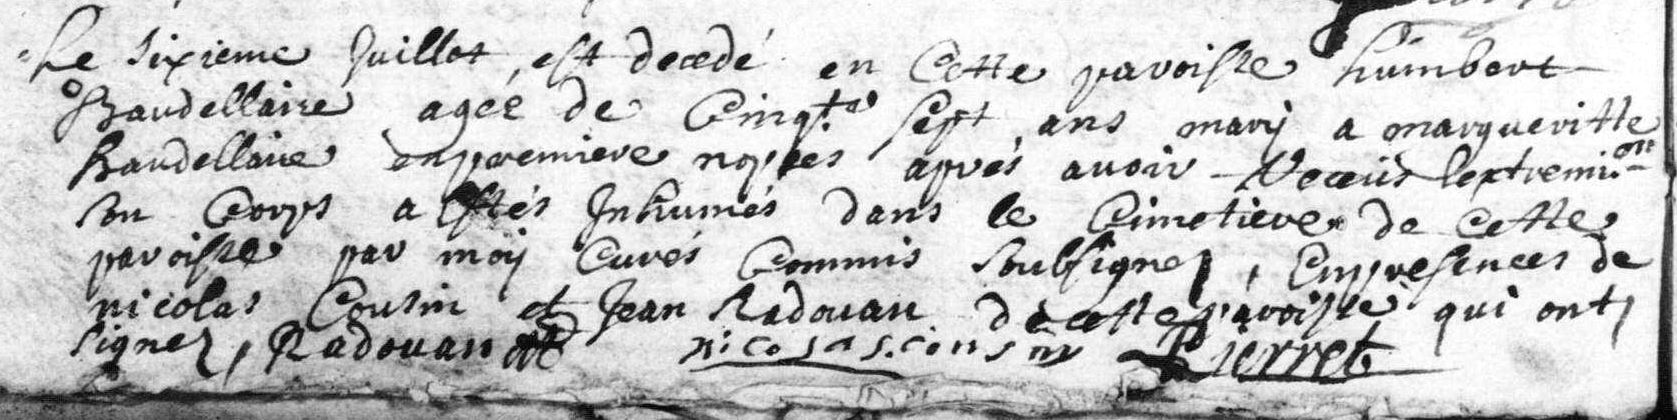 Le sixieme Juillet, est decedé en Cette paroisse humbert
Baudellaire agee de Cinqte sept ans mary a margueritte
Baudellaire en premiere nopces aprés avoir Receus lextremi.on
son Corps a Estés Inhumés dans le Cimetiere de cette
paroisse par moy Curés Commis soubsignez, Em presences de
nicolas Cousin et Jean Radouan de cette paroisse qui ont
signez, Radouan nicolas.cousin Pierret